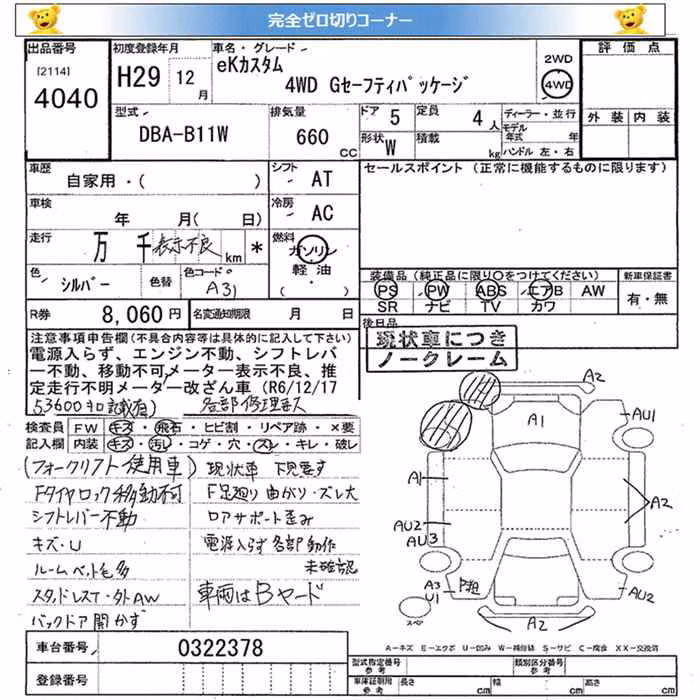 完全ゼロ切りコーナー
出品番号 初度登録年月 車名・グレード 評価点
[2114] 4040 H29 12月 eKカスタム 4WD Gセーフティパッケージ 2WD 4WD
外装 内装
型式 DBA-B11W 排気量 660 CC ドア 5 定員 4人 ディーラー・並行
形状 W 積載 kg モデル年式 年
ハンドル 左・右
車歴 自家用・( ) シフト AT セールスポイント (正常に機能するものに限ります)
車検 年 月( 日) 冷房 AC
走行 万 千 表示不良 km * 燃料 ガソリン 軽油・( )
色 シルバー 色替 色コードNo A31
装備品 (純正品に限り○をつけてください) 新車保証書
PS PW ABS エアB AW 有・無
SR ナビ TV カワ
R券 8,060円 名変通知期限 月 日 後日品
注意事項申告欄(不具合内容等は具体的に記入して下さい)
現状車につき
ノークレーム
電源入らず、エンジン不動、シフトレバ
ー不動、移動不可メーター表示不良、推
定走行不明メーター改ざん車 (R6/12/17
53600キロ記載有) 各部修理要ス
検査員 FW キズ・飛石・ヒビ割・リペア跡・×要
記入欄 内装 キズ・汚レ・コゲ・穴・スレ・キレ・破レ
(フォークリフト使用車) 現状車 下見要す
Fタイヤロック移動不可 F足廻り曲がり・ズレ大
シフトレバー不動 ロアサポート歪み
キズ・U 電源入らず各部動作
ルームペット毛多 未確認
スタッドレスT・外AW 車両はBヤード
バックドア開かず
A2
A1
AU1
A1
A2
AU2
AU3
A3
U1
AU2
A2
スペア
A－キズ E－エクボ U－凹み W－補修跡 S－サビ C－腐食 XX－交換済
車台番号 0322378
登録番号
型式指定番号 参考 類別区分番号 参考
車庫証明用 参考 長さ cm 幅 cm 高さ cm